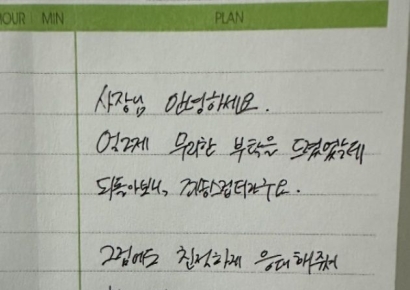 HOUR MIN PLAN
사장님 안녕하세요.
엊그제 무리한 부탁을 드렸었는데
되돌아보니, 죄송스럽더라구요.
그럼에도 친절하게 응대해주셔